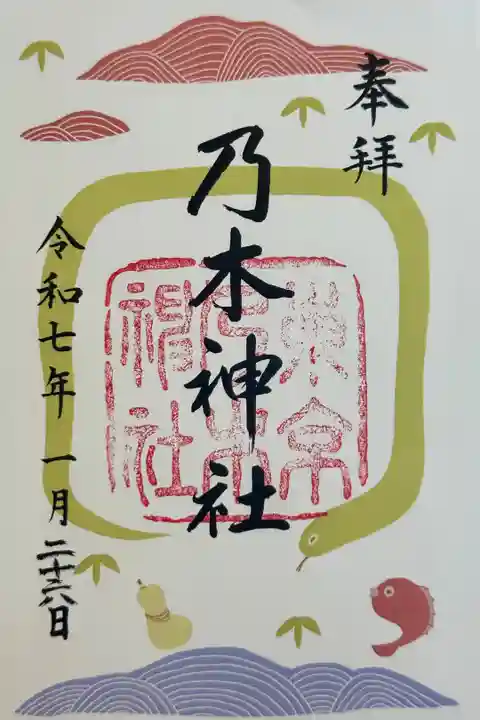 奉拝
乃木神社
東京
乃木
神社
令和七年一月二十六日